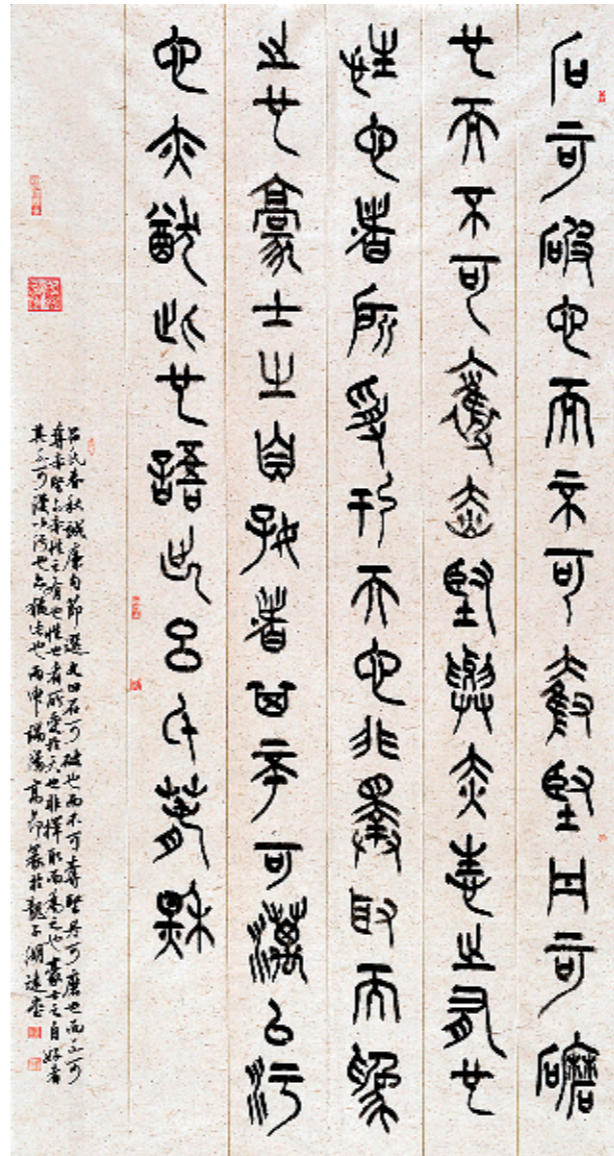 石可破也而不可奪堅丹可磨
也而不可奪赤堅與赤性之有也
性也者所受於天也非擇取而為
之也豪士之自好者其不可漫以污
也亦猶此也語出呂氏春秋
呂氏春秋誠廉句節選文曰石可破也而不可奪堅丹可磨也而不可
奪赤堅與赤性之有也性也者所受於天也非擇取而為之也豪士之自好者
其不可漫以污也亦猶此也丙申端陽高節篆於龍子湖